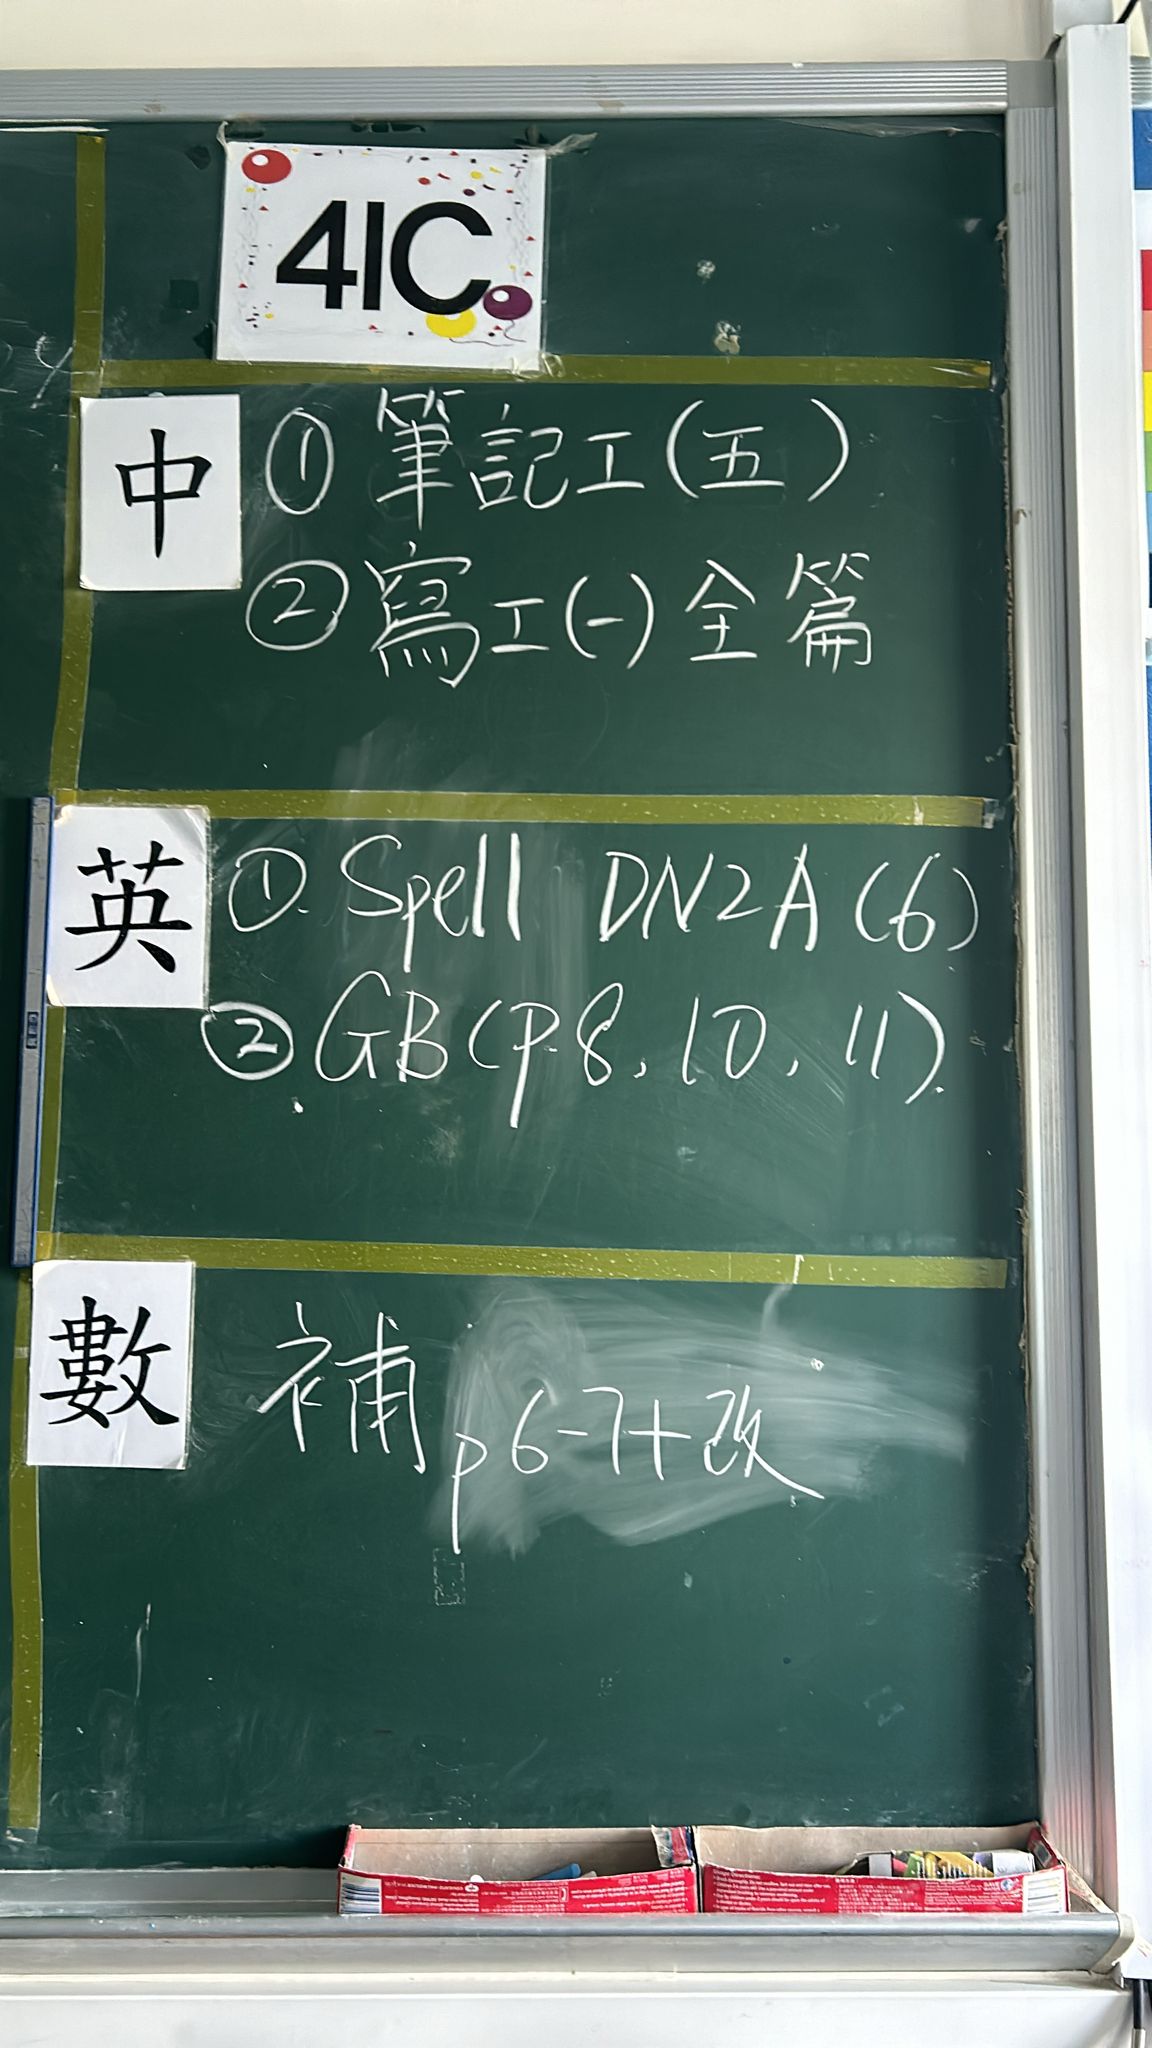 41C
中
① 筆記工(五)
② 寫工(一)全篇
英
①. Spell DN2A(6)
② GB(P8, 10, 11).
數
補 p6-7+改